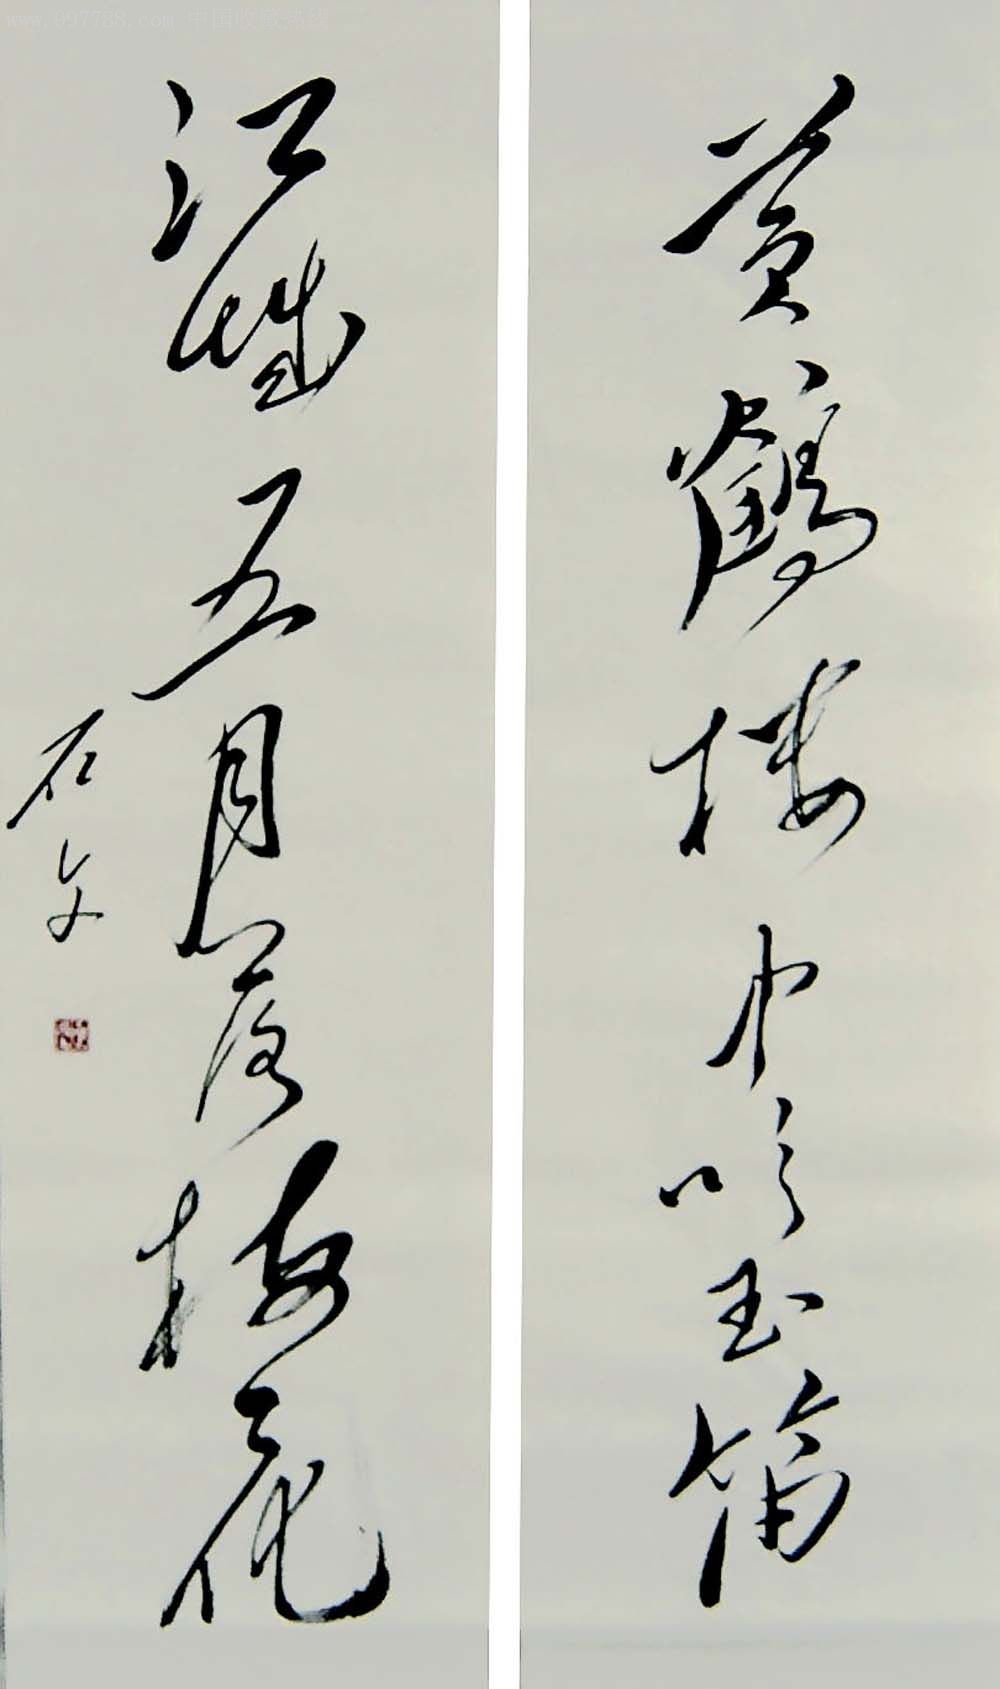 www.997788.com 中国收藏热线
黄鹤楼中吹玉笛
江城五月落梅花
石文